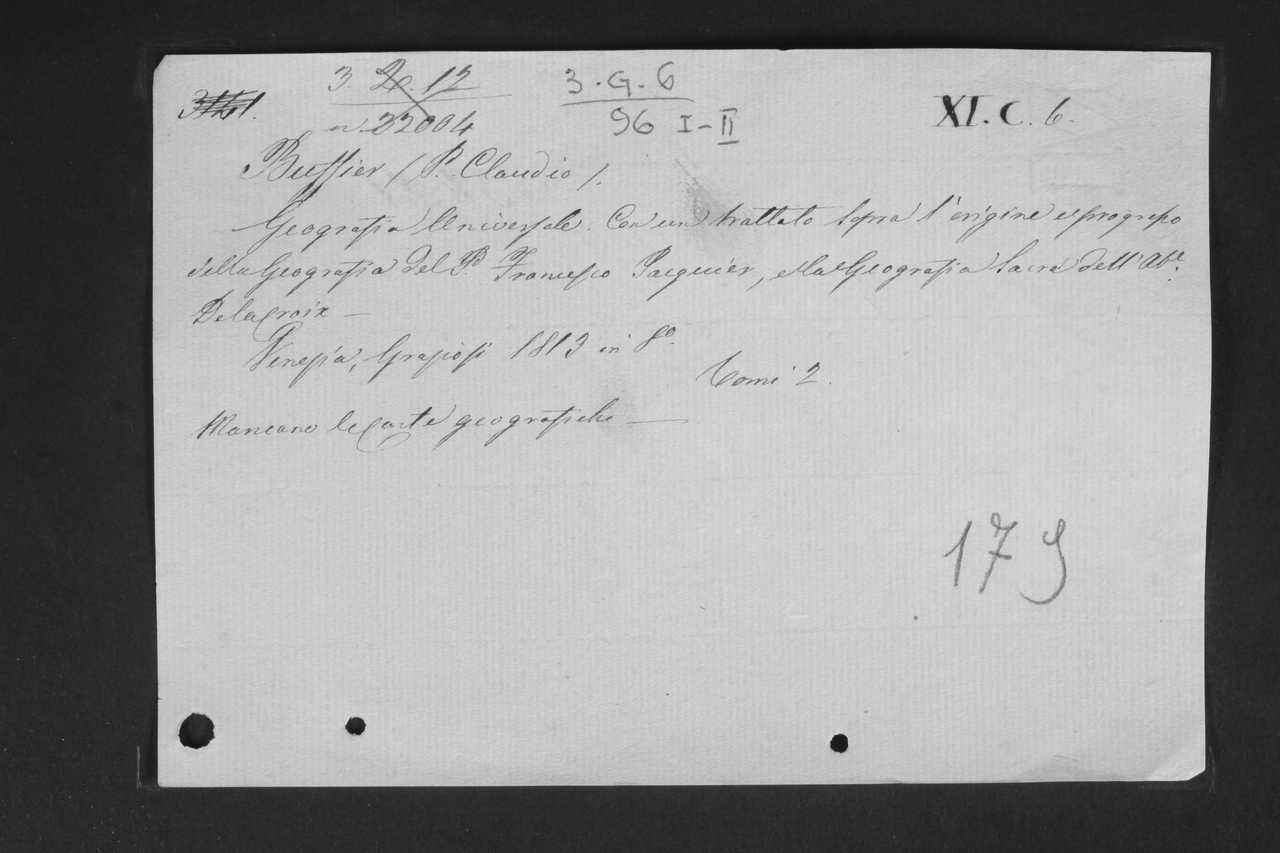 3. 12
3. G. 6
XI. C. 6.
n. 22004
96 I-II
Buffier (P. Claudio).
Geografia Universale. Con un trattato sopra l'origine e progresso
della Geografia del P. Francesco Jacquier, e la Geografia Sacra dell'Abe.
Delacroix —
Venezia, Graziosi 1813 in 8o.
Tomi 2.
Mancano le carte geografiche —
179